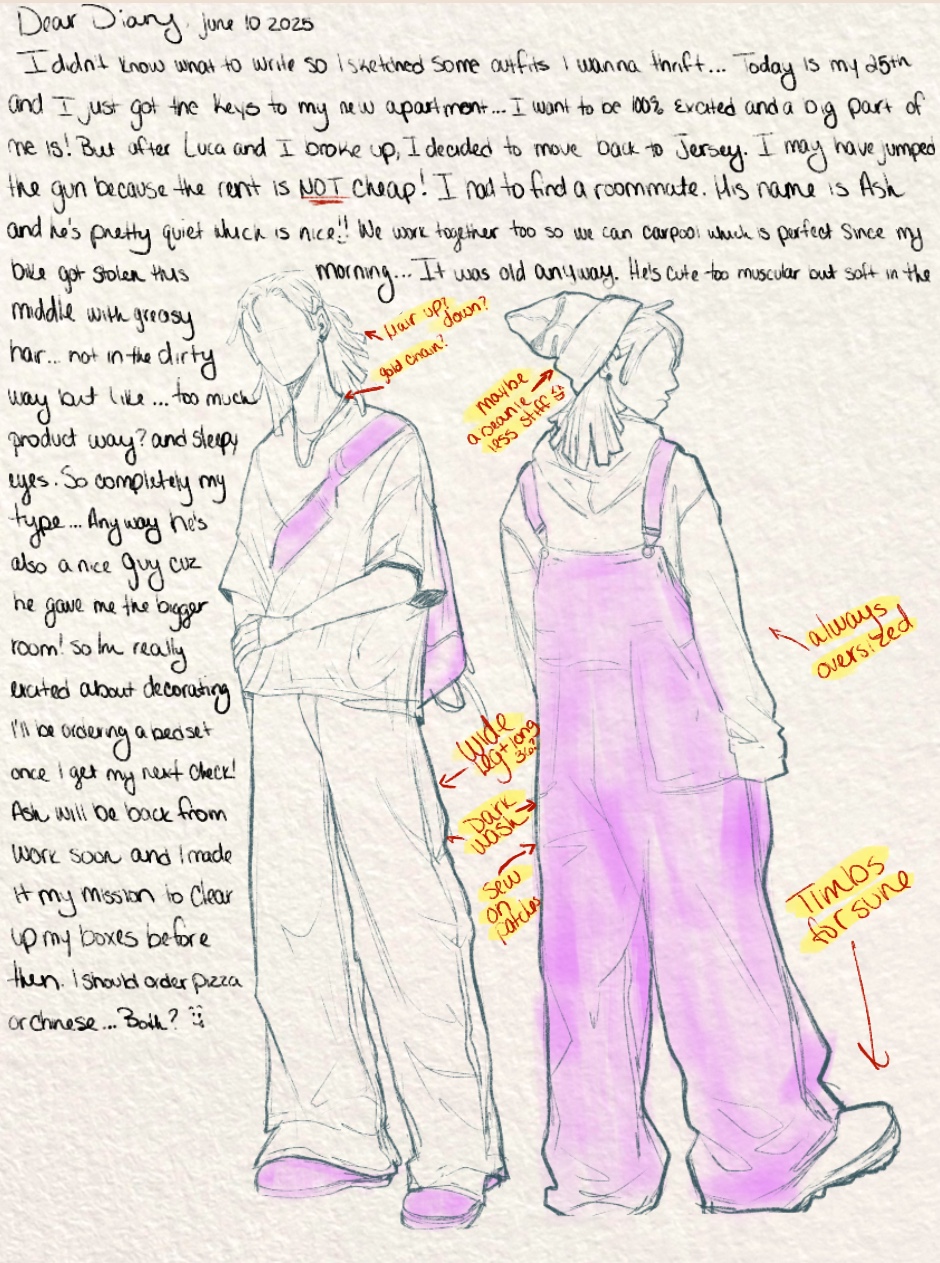 Dear Diary, June 10 2025
I didn't know what to write so I sketched some outfits I wanna thrift... Today is my 25th
and I just got the keys to my new apartment... I want to be 100% excited and a big part of
me is! But after Luca and I broke up, I decided to move back to Jersey. I may have jumped
the gun because the rent is NOT cheap! I had to find a roommate. His name is Ash
and he's pretty quiet which is nice!! We work together too so we can carpool which is perfect since my
bike got stolen this morning... It was old anyway. He's cute too muscular but soft in the
middle with greasy
hair... not in the dirty
way but like... too much
product way? and sleepy
eyes. So completely my
type... Anyway he's
also a nice guy cuz
he gave me the bigger
room! so Im really
excited about decorating
I'll be ordering a bedset
once I get my next check!
Ash will be back from
work soon and I made
it my mission to clear
up my boxes before
then. I should order pizza
or chinese... Both?
Hair up?
down?
gold chain?
maybe
a beanie
less stiff
always
oversized
Wide
leg + long
36?
Dark
wash
Sew
on
patches
Timbs
for sure